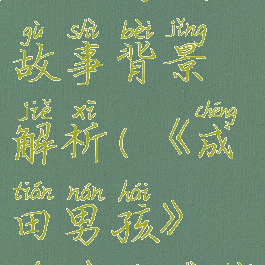 gù shì bèi jǐng
故事背景
jiě xī chéng
解析(《成
tián nán hái
田男孩》